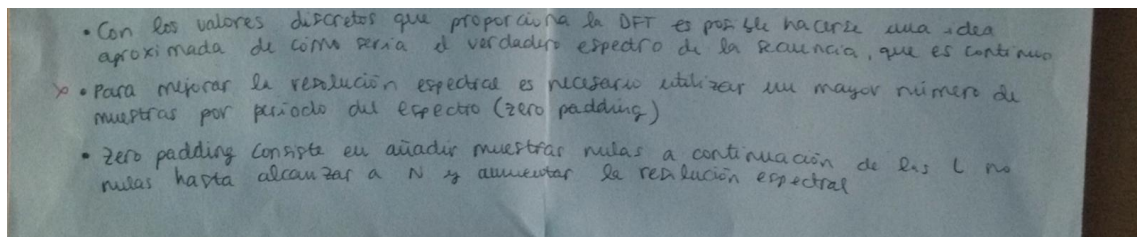 • Con los valores discretos que proporciona la DFT es posible hacerse una idea
aproximada de cómo sería el verdadero espectro de la secuencia, que es continuo
• Para mejorar la resolución espectral es necesario utilizar un mayor número de
muestras por periodo del espectro (zero padding)
• Zero padding consiste en añadir muestras nulas a continuación de las L no
nulas hasta alcanzar a N y aumentar la resolución espectral